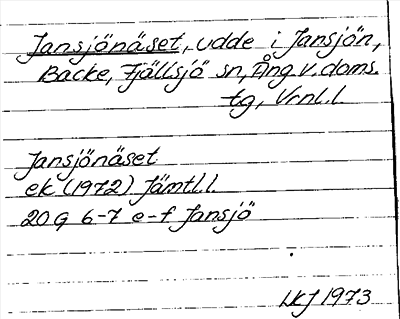 Jansjönäset, udde i Jansjön,
Backe, Fjällsjö sn, Ång. v. doms.
tg, Vrnl. l.
Jansjönäset
ek (1972) Jämtl. l.
20 G 6-7 e-f Jansjö
LKJ 1973